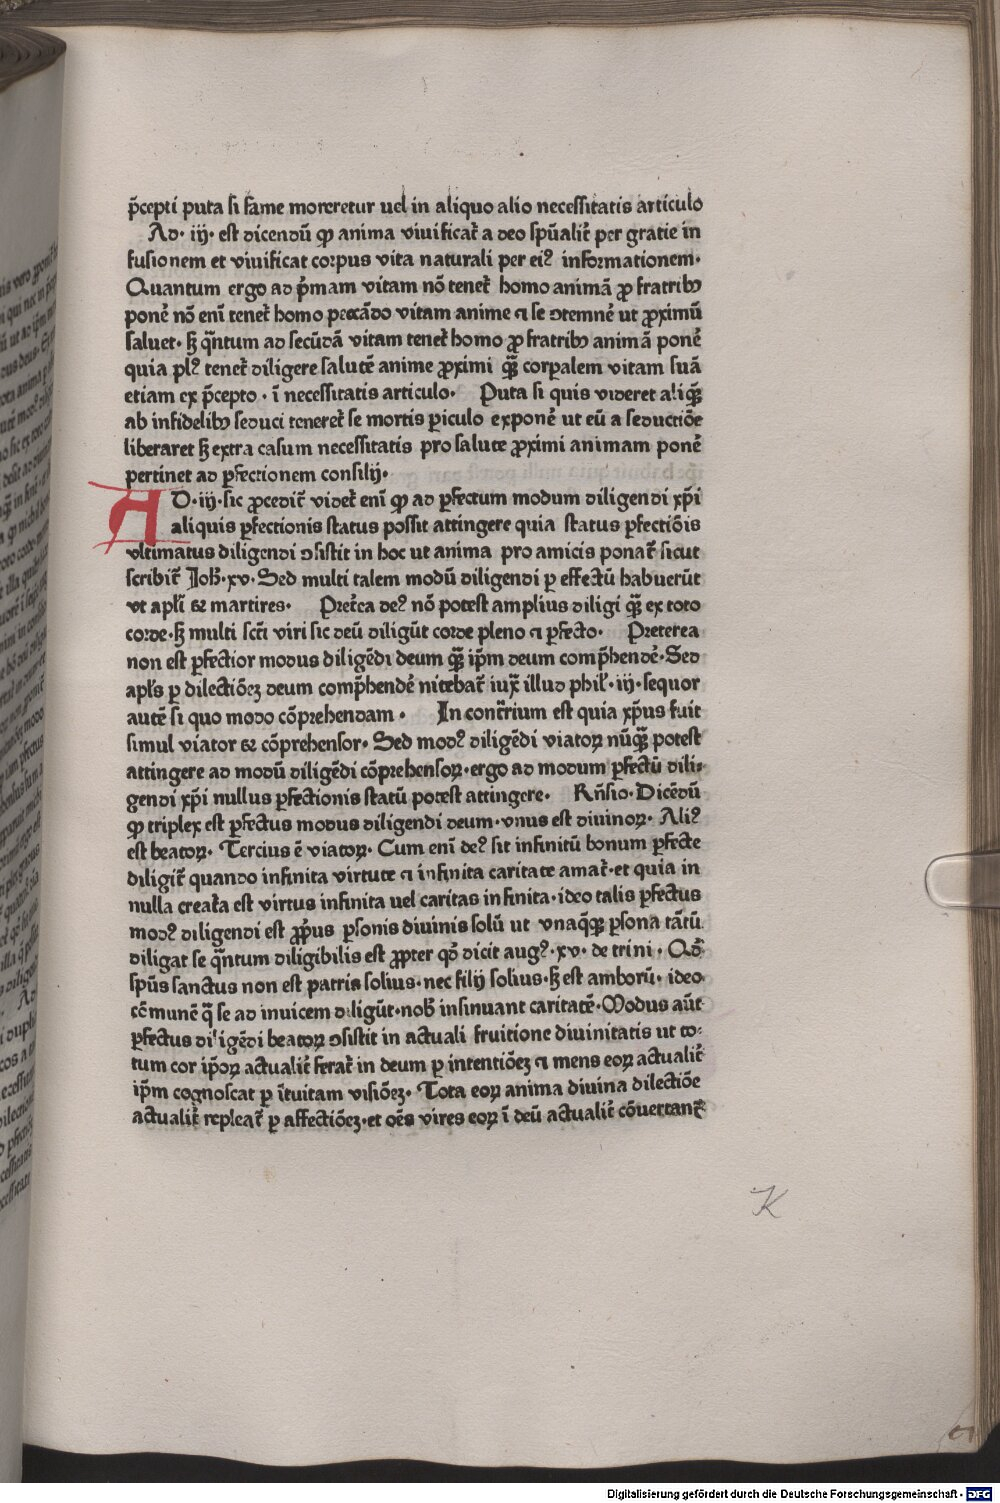 p̄cepti puta si fame moreretur uel in aliquo alio necessitatis articulo
Ad· iij· est dicendū ꝙ anima viuificat᷑ a deo spūalit᷑ per gratie in
fusionem et viuificat corpus vita naturali per eiꝰ informationem·
Quantum ergo ad p̄mam vitam nō tenet᷑ homo animā ꝓ fratribꝫ
ponē nō enī tenet᷑ homo peccādo vitam anime ⁊ se ꝯtemnē ut ꝓximū
saluet· sꝫ q̄ntum ad secūdā vitam tenet᷑ homo ꝓ fratribꝫ animā ponē
quia plꝰ tenet᷑ diligere salutē anime ꝓximi qȝ̄ corꝑalem vitam suā
etiam ex p̄cepto · ī necessitatis articulo· Puta si quis videret aliqȝ̄
ab infidelibꝫ seduci teneret᷑ se mortis ꝑiculo exponē ut eū a seductiōe
liberaret sꝫ extra casum necessitatis pro salute ꝓximi animam ponē
pertinet ad ꝑfectionem consilij·
AD·iij·sic ꝓcedit᷑ videt᷑ enī ꝙ ad ꝑfectum modum diligendi xp̄i
aliquis ꝑfectionis status possit attingere quia status ꝑfectiōis
vltimatus diligendi ꝯsistit in hoc ut anima pro amicis ponat᷑ sicut
scribit᷑ Joh̄·xv·Sed multi talem modū diligendi ꝑ effectū habuerūt
vt apl̄i ⁊ martires· Pret᷑ea deꝰ nō potest amplius diligi qȝ̄ ex toto
corde·sꝫ multi sc̄ti viri sic deū diligūt corde pleno ⁊ ꝑfecto· Preterea
non est ꝑfectior modus diligēdi deum qȝ̄ ip̄m deum comp̄hendē·Sed
apl̄s ꝑ dilectiōeꝫ deum comp̄hendē nitebat᷑ iux̄ illud phil̓·iij·sequor
autē si quo modo cōprehendam · In cont̄rium est quia xp̄us fuit
simul viator ⁊ cōprehensor· Sed modꝰ diligēdi viatoꝝ nūqȝ̄ potest
attingere ad modū diligēdi cōprehensoꝝ·ergo ad modum ꝑfectū dili⸗
gendi xp̄i nullus ꝑfectionis statū potest attingere· Rn̄sio·Dicēdū
ꝙ triplex est ꝑfectus modus diligendi deum·vnus est diuinoꝝ· Aliꝰ
est beatoꝝ· Tercius ē viatoꝝ· Cum enī deꝰ sit infinitū bonum ꝑfecte
diligit᷑ quando infinita virtute ⁊ infinita caritate amat᷑·et quia in
nulla creat᷑a est virtus infinita uel caritas infinita·ideo talis ꝑfectus
modꝰ diligendi est ꝓp̄us ꝑsonis diuinis solū ut vnaqȝ̄qȝ ꝑsona tātū
diligat se q̄ntum diligibilis est ꝓpter qd̄ dicit augꝰ·xv· de trini · Qd̄
sp̄us sanctus non est patris solius·nec filij solius·sꝫ est amborū· ideo
cōmunē q̄ se ad inuicem diligūt·nob̄ insinuant caritatē·Modus aūt
ꝑfectus diligēdi beatoꝝ ꝯsistit in actuali fruitione diuinitatis ut to⸗
tum cor ip̄oꝝ actualit᷑ ferat᷑ in deum ꝑ intentiōeꝫ ⁊ mens eoꝝ actualit᷑
ip̄m cognoscat ꝑ ītuitam visiōeꝫ· Tota eoꝝ anima diuina dilectiōe
actualit᷑ repleat᷑ ꝑ affectiōeꝫ·et oēs vires eoꝝ ī deū actualit᷑ cōuertant᷑
K
Digitalisierung gefördert durch die Deutsche Forschungsgemeinschaft - DFG